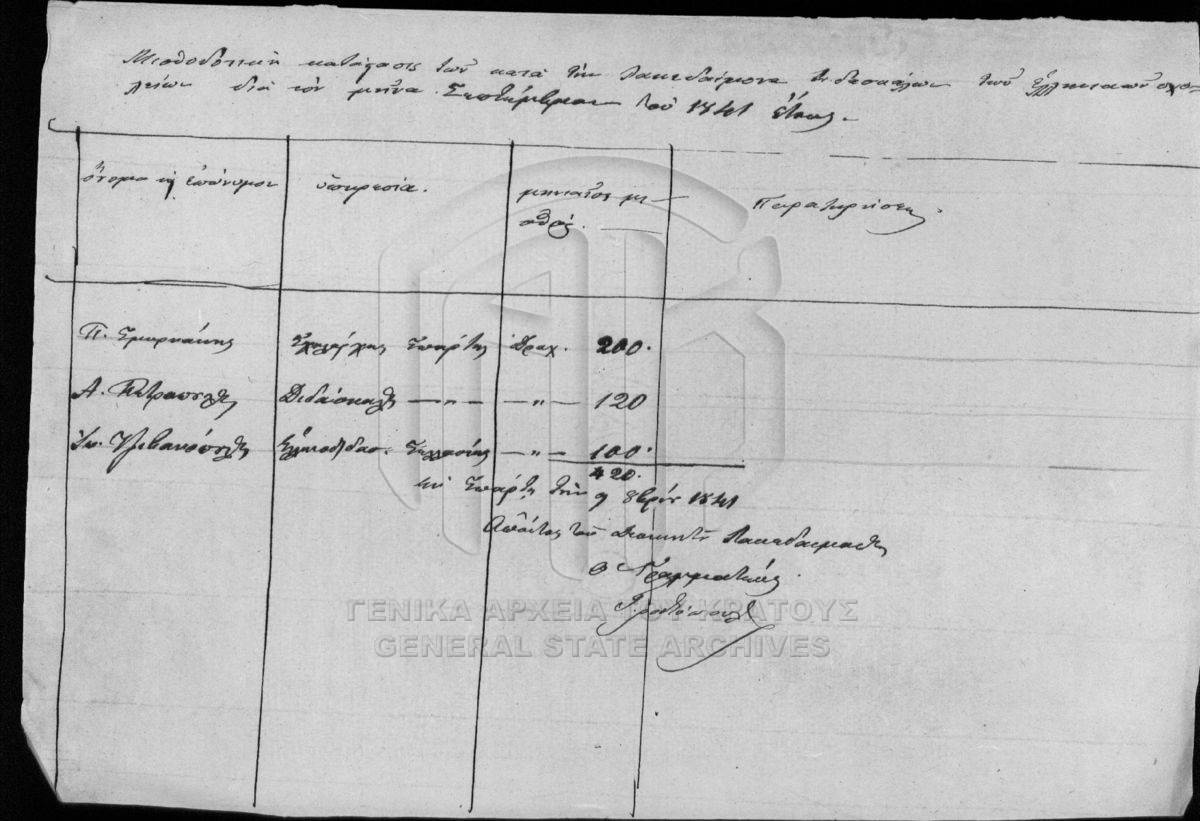 Μισθοδοτική κατάστασις των κατά την Λακεδαίμονα διδασκάλων των Ελληνικών σχο-
λείων διά τον μήνα Σεπτέμβριον του 1841 έτους.-
όνομα κ επώνυμον
υπηρεσία.
μηνιαίος μι-
σθός.
Παρατηρήσεις
Π. Σμυρνάκης Σχολάρχης Σπάρτης Δραχ. 200.
Α. Πετρόπουλος Διδάσκαλος —〃— —〃— 120
Ελληνοδιδασ. —〃— 100.
420.
Εν Σπάρτη την 9 8βρίου 1841
του Διοικητού Λακεδαίμονος
ο Γραμματεύς
ΓΕΝΙΚΑ ΑΡΧΕΙΑ ΤΟΥ ΚΡΑΤΟΥΣ
GENERAL STATE ARCHIVES